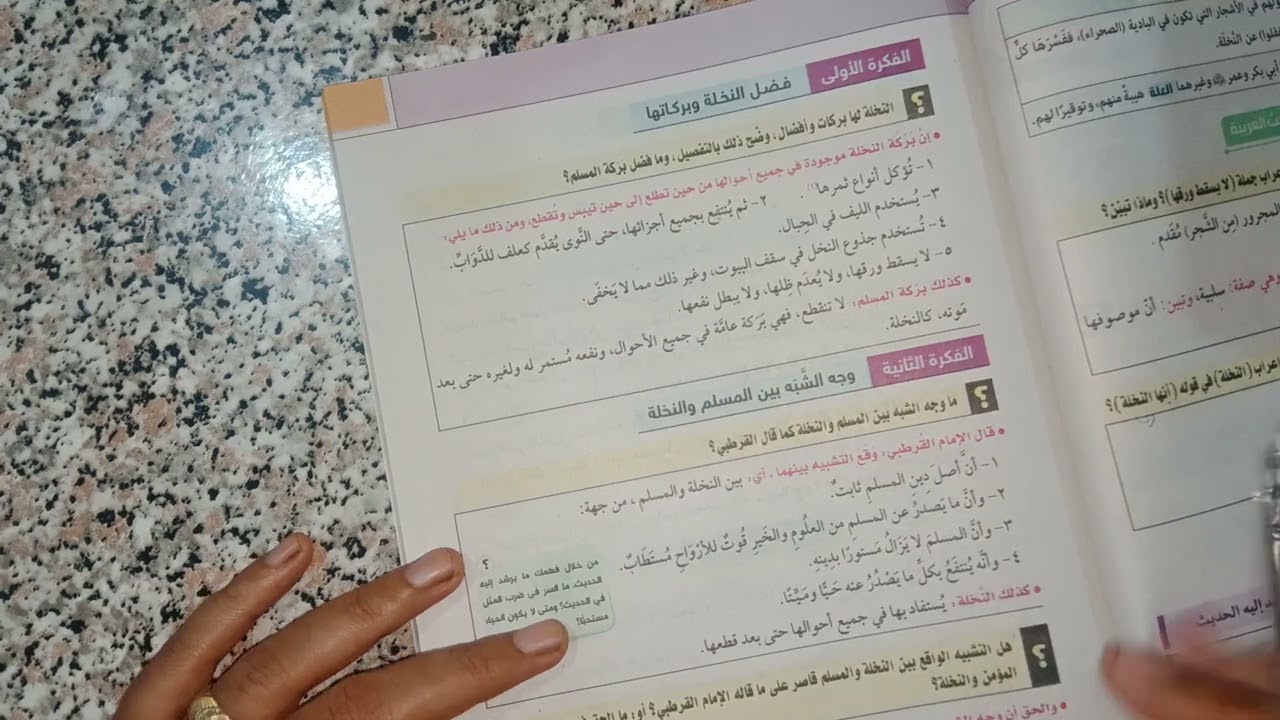 ـولهم في الأشجار التي تكون في البادية (الصحراء)، ففَسَّرَهَا كلٌّ
ـفلوا) عن النَّخلَة.
أبي بكر وعمر ﷺ وغيرهما العلة هيبةً منهم، وتوقيرًا لهم.
العربية
ـعراب جملة (لا يسقط ورقها)؟ وماذا تبيّن؟
المجرور (مِن الشَّجر) مُقَدم .
وهي صفة: سلبية، وتبين: أنّ موصوفها
إعراب (النخلة) في قوله (إنها النخلة)؟
ـد إليه الحديث
الفكرة الأولى
فضل النخلة وبركاتها
؟ النخلة لها بركات وأفضال، وضّح ذلك بالتفصيل، وما فضل بَرَكة المسلم؟
• إنّ بَرَكة النخلة موجودة في جميع أحوالها من حين تطلع إلى حين تيبس وتُقطع، ومن ذلك ما يلي:
١- تُؤكل أنواع ثمرها(١).
٢- ثم يُنتفع بجميع أجزائها، حتى النَّوى يُقدَّم كعلف للدَّوَابِّ.
٣- يُستخدم الليف في الحِبال.
٤- تُستخدم جذوع النخل في سقف البيوت، وغير ذلك مما لا يَخفَى.
٥- لا يسقط ورقها، ولا يُعدَم ظِلها، ولا يبطل نفعها.
• كذلك بركة المسلم: لا تنقطع، فهي بَرَكة عامَّة في جميع الأحوال، ونفعه مُستمر له ولغيره حتى بعد
مَوته، كالنخلة.
الفكرة الثانية
وجه الشَّبَه بين المسلم والنخلة
؟ ما وجه الشبه بين المسلم والنخلة كما قال القرطبي؟
• قال الإمام القُرطبي: وقعَ التشبيه بينهما، أي: بين النخلة والمسلم، من جهة:
١- أنَّ أصلَ دِينِ المسلمِ ثابتٌ.
٢- وأنَّ ما يَصدَرُ عن المسلمِ من العلُومِ والخَيرِ قُوتٌ للأرْوَاحِ مُستَطَابٌ.
٣- وأنَّ المسلمَ لا يَزَالُ مَستورًا بدِينِه.
٤- وأنَّه يُنتفَعُ بكلِّ ما يَصْدُرُ عنه حَيًّا ومَيِّتًا.
• كذلك النَّخلة: يُستفاد بها في جميع أحوالها حتى بعد قطعها.
من خلال فهمك ما يرشد إليه ؟
الحديث ما السر في ضرب المثل
في الحديث؟ ومتى لا يكون الحياء
مستحبًا؟
؟ هل التشبيه الواقع بين النخلة والمسلم قاصر على ما قاله الإمام القرطبي؟ أو: ما
المؤمن والنخلة؟
• والحق أن وجه